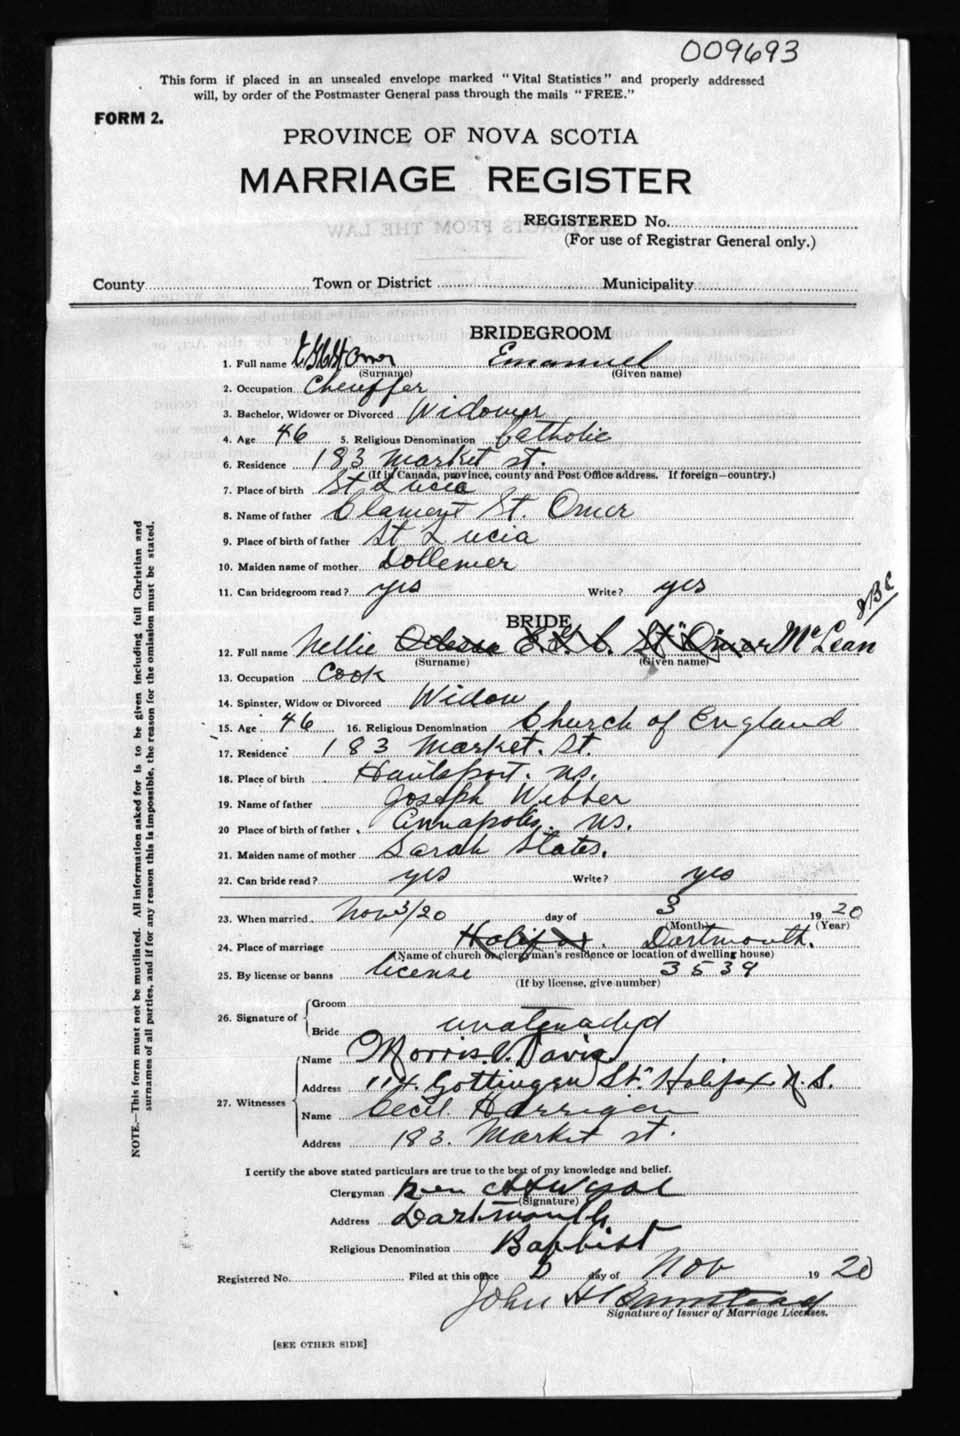 009693
This form if placed in an unsealed envelope marked "Vital Statistics" and properly addressed
will, by order of the Postmaster General pass through the mails "FREE."
FORM 2.
PROVINCE OF NOVA SCOTIA
MARRIAGE REGISTER
REGISTERED No.
(For use of Registrar General only.)
County Town or District Municipality
BRIDEGROOM
1. Full name St Omer Emanuel
(Surname) (Given name)
2. Occupation Cheuffer
3. Bachelor, Widower or Divorced Widower
4. Age 46 5. Religious Denomination Catholic
6. Residence 183 Market st.
(If in Canada, province, county and Post Office address. If foreign—country.)
7. Place of birth St Lucia
8. Name of father Clament St. Omer
9. Place of birth of father St Lucia
10. Maiden name of mother Dollemer
11. Can bridegroom read? yes Write? yes
BRIDE
12. Full name Nellie Odessa E. G. C. St Omer McLean
(Surname) (Given name)
13. Occupation Cook
14. Spinster, Widow or Divorced Widow
15. Age 46 16. Religious Denomination Church of England
17. Residence 183 Market. St.
18. Place of birth Hantsport. ns.
19. Name of father Joseph Webber
20 Place of birth of father Annapolis. ns.
21. Maiden name of mother Sarah States.
22. Can bride read? yes Write? yes
23. When married Nov 3/20 day of 3 1920
(Month) (Year)
24. Place of marriage Halifax. Dartmouth.
(Name of church or clergyman's residence or location of dwelling house)
25. By license or banns license 3539
(If by license, give number)
26. Signature of Groom
Bride
27. Witnesses
Name Morris. Davis
Address 114. Gottingen St. Halifax N. S.
Name Cecil Harrigan
Address 183. Market st.
I certify the above stated particulars are true to the best of my knowledge and belief.
Clergyman Rev
(Signature)
Address Dartmouth
Religious Denomination Baptist
Registered No. Filed at this office day of Nov 1920
John H
Signature of Issuer of Marriage Licenses.
[SEE OTHER SIDE]
NOTE.—This form must not be mutilated. All information asked for is to be given including full Christian and
surnames of all parties, and if for any reason this is impossible, the reason for the omission must be stated.